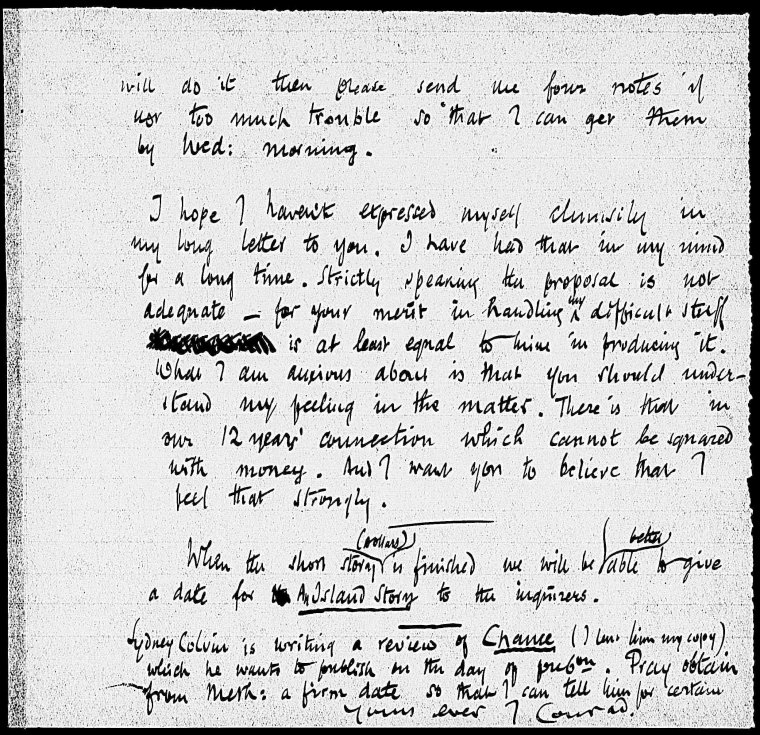 will do it then please send me four notes if
not too much trouble so that I can get them
by Wed: morning.
I hope I haven't expressed myself clumsily in
my long letter to you. I have had that in my mind
for a long time. Strictly speaking the proposal is not
adequate — for your merit in handling my difficult stuff
is at least equal to mine in producing it.
What I am anxious about is that you should under-
stand my feeling in the matter. There is that in
our 12 years' connection which cannot be squared
with money. And I want you to believe that I
feel that strongly.
When the short story (Dollars) is finished we will be better able to give
a date for An Island Story to the inquirers.
Sydney Colvin is writing a review of Chance (I lent him my copy)
which he wants to publish on the day of pubon. Pray obtain
from Meth: a firm date so that I can tell him for certain
Yours ever J Conrad.